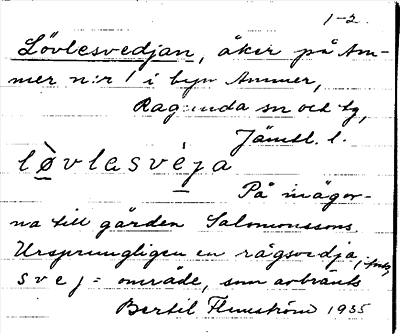 1-2.
Lövlesvedjan, åker på Am-
mer n:r 1 i byn Ammer,
Ragunda sn och tg,
Jämtl. l.
lø̀vlasvéja
På inägor-
na till gården Salomonssons.
Ursprungligen en rågsvedja,
svej = område, som avbränts
Bertil Flemström 1935